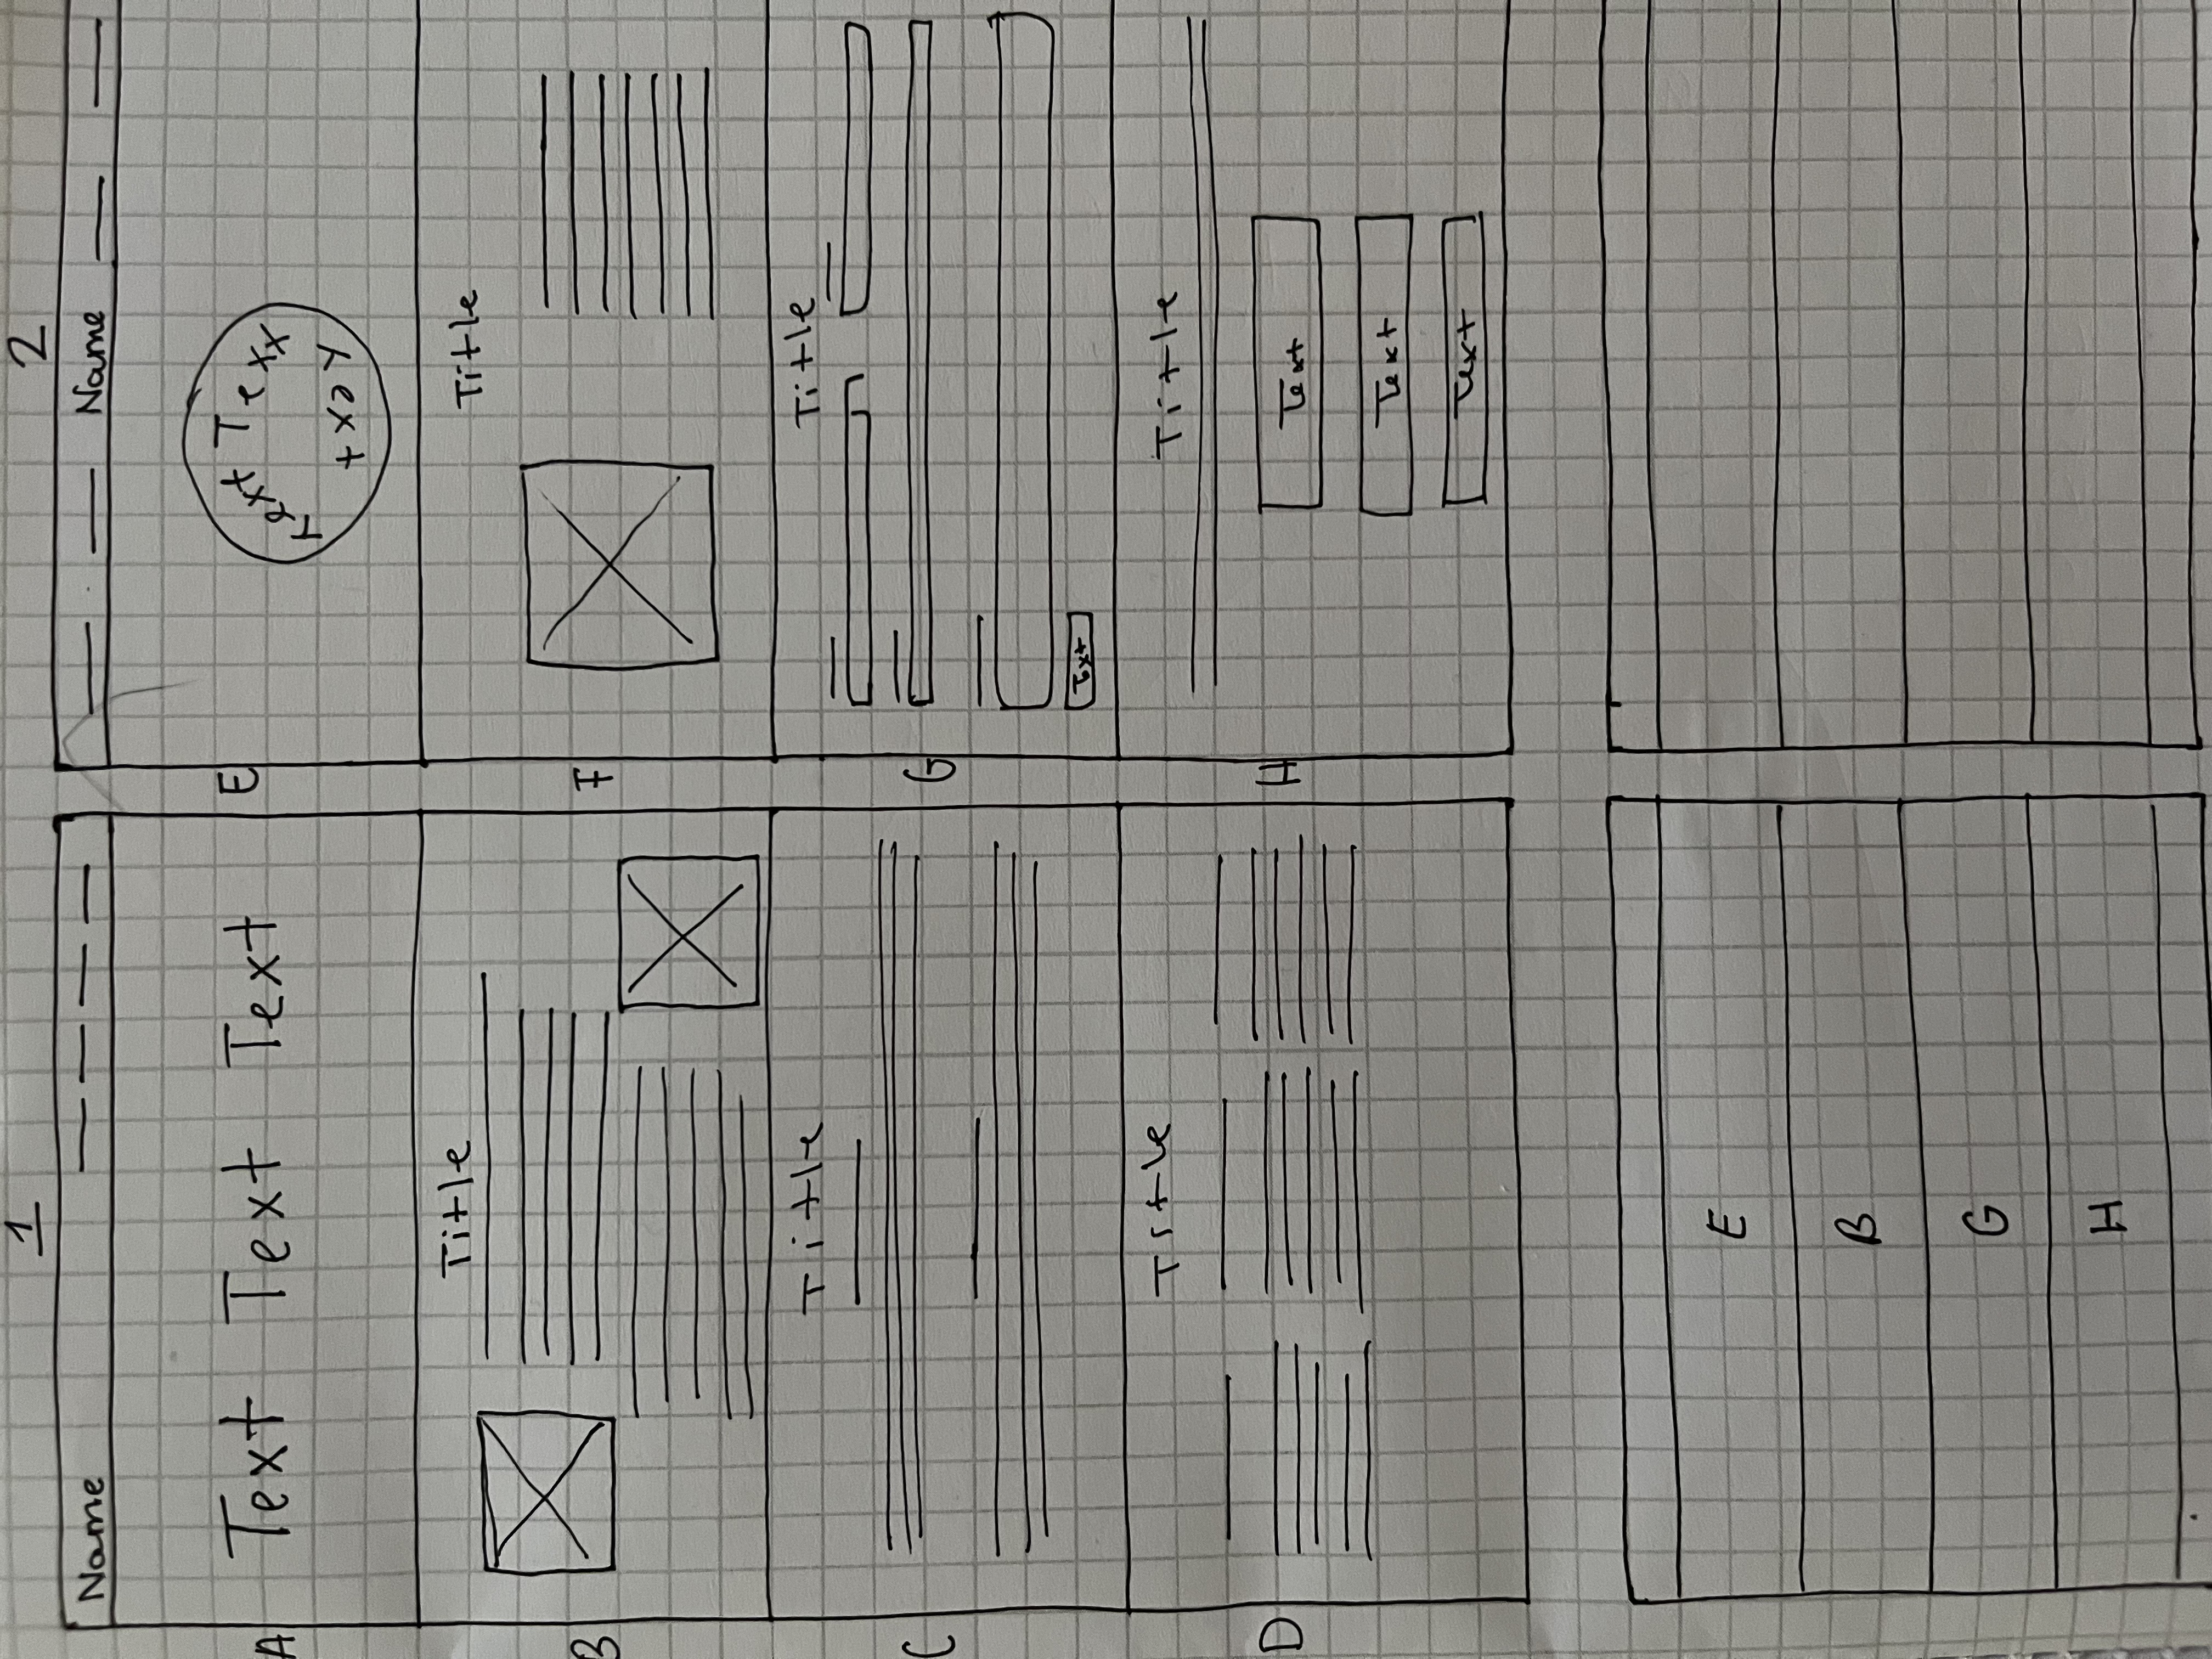 1
Name
A
Text Text Text
B
Title
C
Title
D
Title
2
Name
E
Text Texx
Yaxt
F
Title
G
Title
Text
H
Title
Text
Text
Text
E
B
G
H